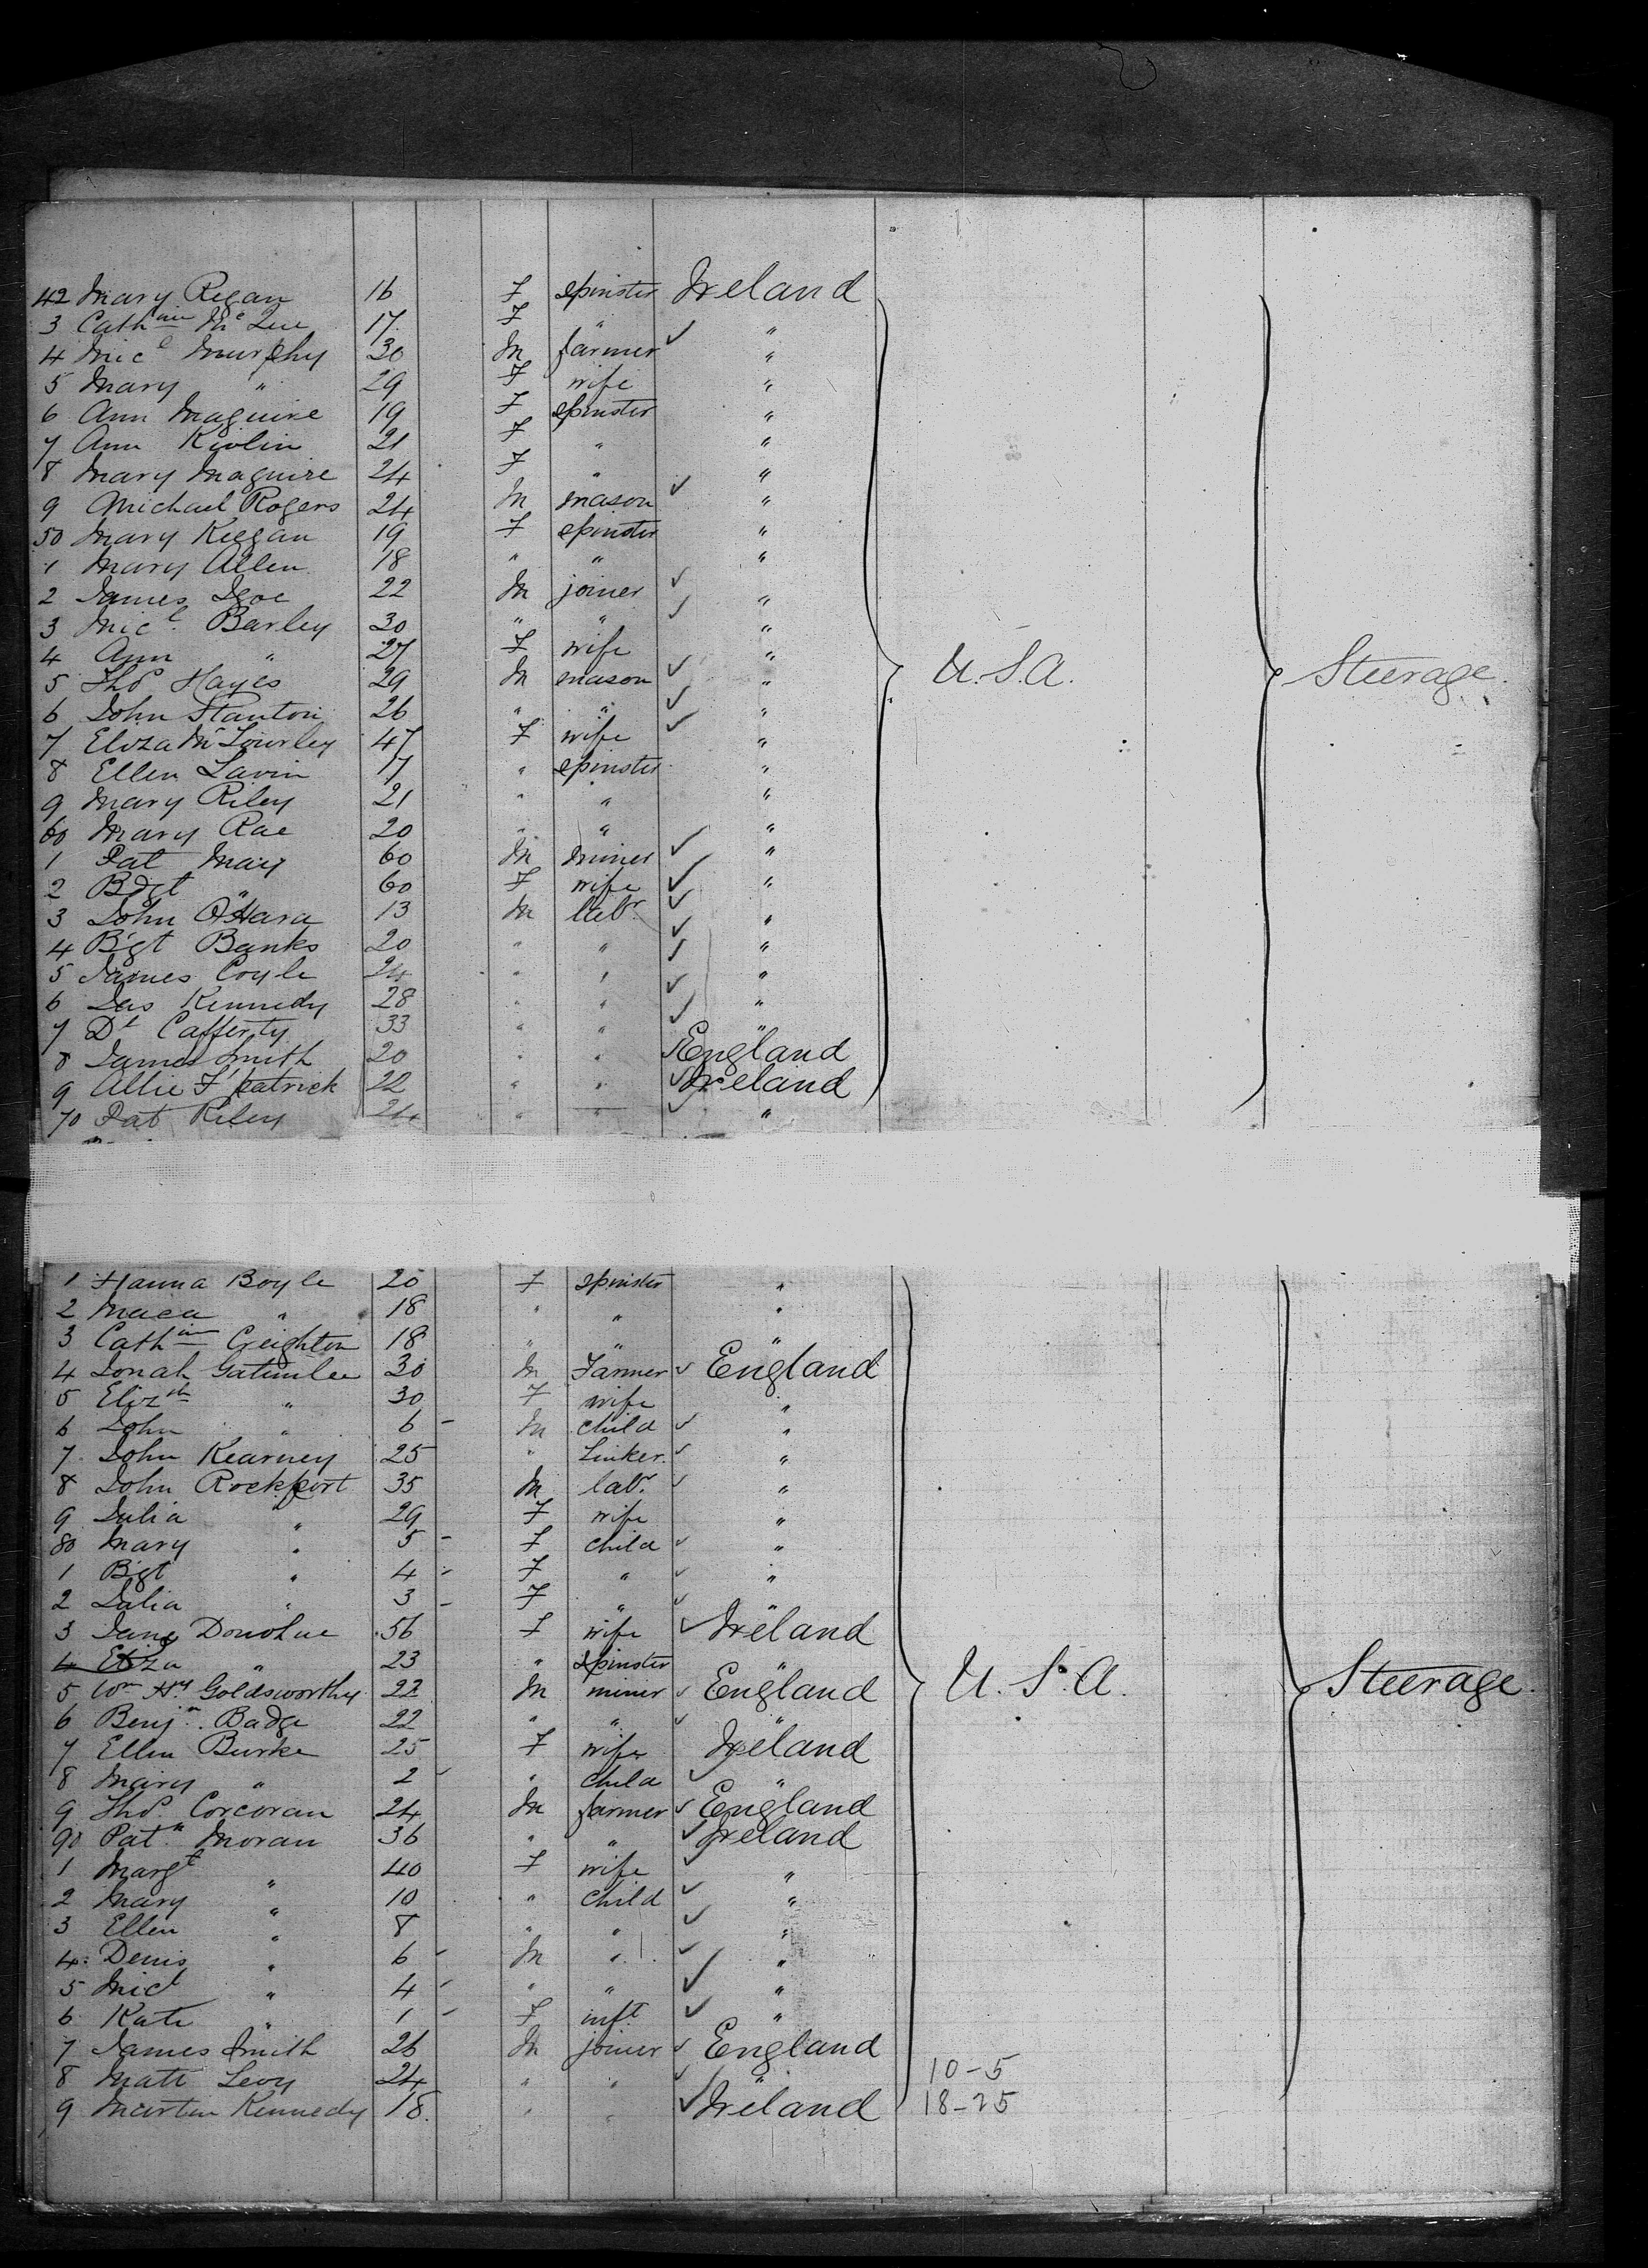 42 Mary Regan 16 F spinster Ireland
3 Cath^ine McQue 17 F " "
4 Mic^l Murphy 30 M farmer "
5 Mary " 29 F wife "
6 Ann Maguire 19 F spinster "
7 Ann Kivlin 21 F " "
8 Mary Maguire 24 F " "
9 Michael Rogers 24 M mason "
50 Mary Keegan 19 F spinster "
1 Mary Allen 18 " " "
2 James Igoe 22 M joiner "
3 Mic^l. Barley 30 " " "
4 Ann " 27 F wife "
5 Tho^s Hayes 29 M mason " U.S.A. Steerage.
6 John Stanton 26 " " "
7 Eliza McLourley 47 F wife "
8 Ellen Lavin 17 " spinster "
9 Mary Riley 21 " " "
60 Mary Rae 20 " " "
1 Pat May 60 M miner "
2 Bdgt " 60 F wife "
3 John O'Hara 13 M lab^r. "
4 B'gt Banks 20 " " "
5 James Coyle 24 " " "
6 Jas Kennedy 28 " " "
7 D^l Cafferty 33 " " "
8 James Smith 20 " " England
9 Allie F'patrick 22 " " Ireland
70 Pat Riley 24 " " "
1 Hanna Boyle 20 F spinster "
2 Maca " 18 " " "
3 Cath^ine Creighton 18 " " "
4 Jonah 30 M Farmer England
5 Eliz^th " 30 F wife "
6 John " 6 - M child "
7 John Kearney 25 " "
8 John Rockfort 35 M lab^r. "
9 Julia " 29 F wife "
80 Mary " 5 - F child "
1 B'gt " 4 - F " "
2 Julia " 3 - F " "
3 Jane Donohue 56 F wife Ireland
4 Eliza " 23 " spinster "
5 W^m H^y. Goldsworthy 22 M miner England U.S.A. Steerage.
6 Benj^n. Badge 22 " " "
7 Ellen Burke 25 F wife Ireland
8 Mary " 2 - " child "
9 Tho^s. Corcoran 24 M farmer England
90 Pat^k Moran 36 " " Ireland
1 Marg^t " 40 F wife "
2 Mary " 10 " child "
3 Ellen " 8 " " "
4 Denis " 6 - M " "
5 Mic^l " 4 - " " "
6 Kate " 1 - F inft "
7 James Smith 26 M joiner England
8 Matt Levy 24 " " " 10-5
9 Martin Kennedy 18 " " Ireland 18-25